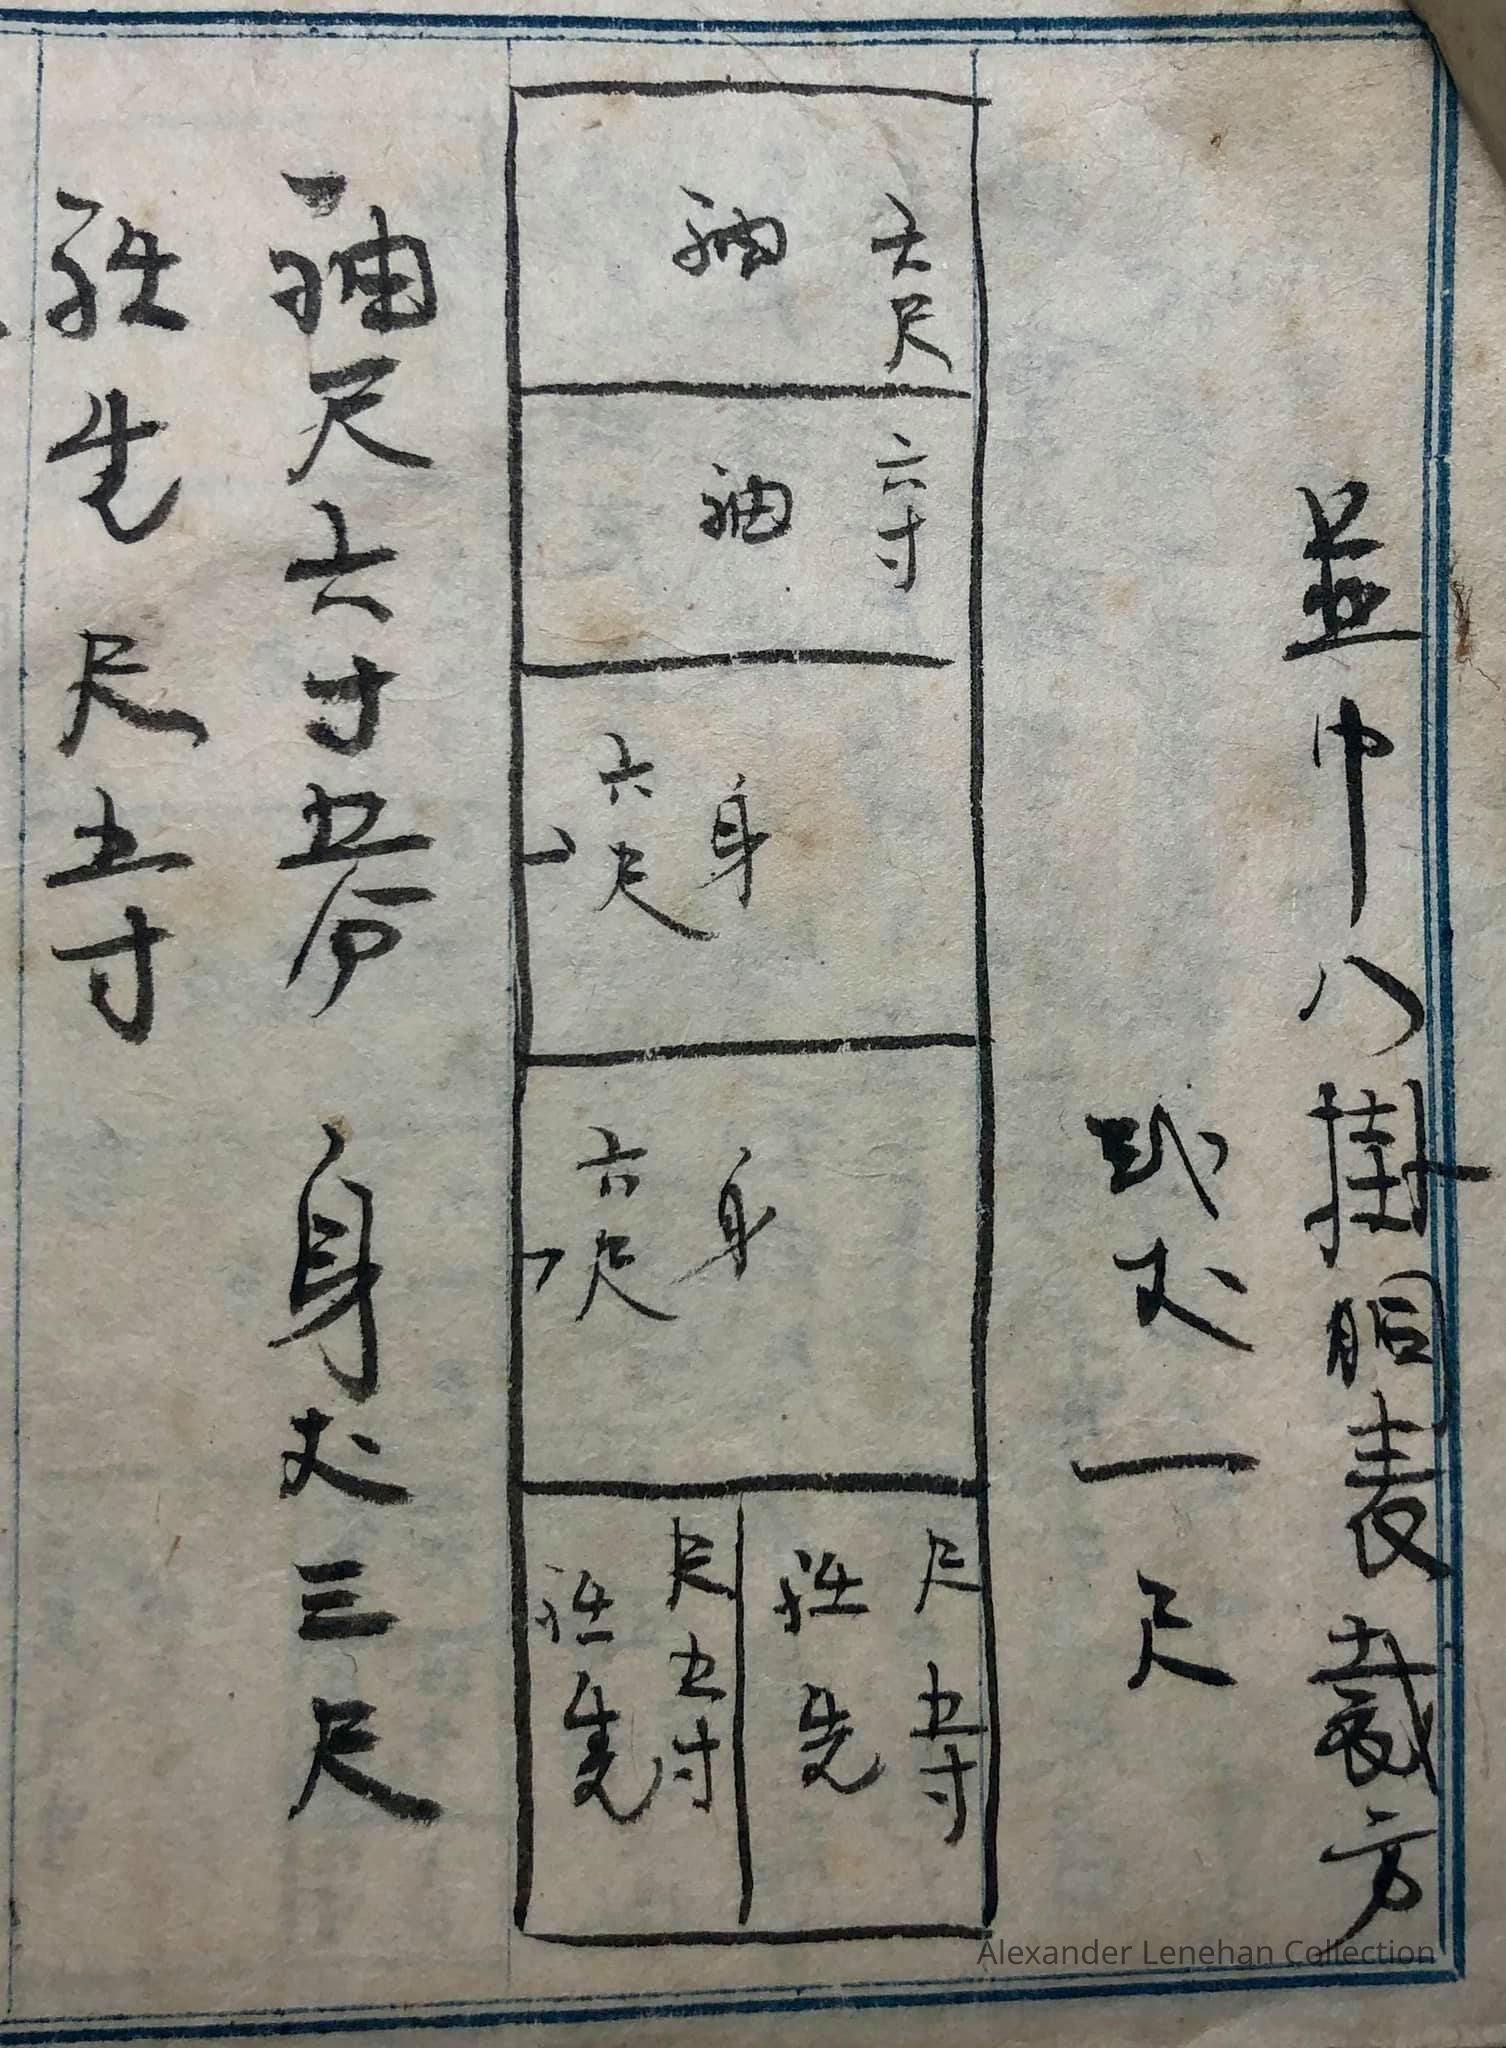 並巾八掛胴表裁方
弐丈一尺
六尺
袖
六寸
袖
身
六尺
身
六尺
尺五寸
衽先
尺五寸
衽先
袖尺六寸五分　身丈三尺
衽先尺五寸
Alexander Lenehan Collection